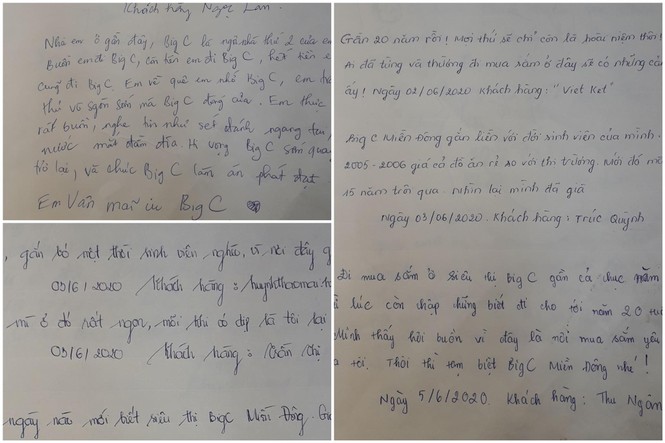 Khách hàng Ngọc Lan
Nhà em ở gần đây, Big C là ngôi nhà thứ 2 của em
Buồn em đi Big C, còn tiền em đi Big C, hết tiền e
cũng đi Big C. Em về quê em nhớ Big C, em
thì vô sgòn sớm mà Big C đóng cửa. Em thực
rất buồn, nghe tin như sét đánh ngang tai,
nước mắt đầm đìa. Hi vọng Big C sớm quay
trở lại, và chúc Big C làm ăn phát đạt
Em Vẫn mãi iu Big C
, gắn bó một thời sinh viên nghèo, vì nơi đây g
03/6/2020 Khách hàng : huynhthaomai.t
mì ở đó rất ngon, mỗi khi có dịp là tôi lại
03/6/2020 Khách hàng : Trần Thị
ngày nào mới biết siêu thị BigC Miền Đông.
Gần 20 năm rồi! Mọi thứ sẽ chỉ còn là hoài niệm thôi!
Ai đã từng và thường đi mua sắm ở đây sẽ có những cả
ấy! Ngày 02/06/2020 Khách hàng: "Viet Ket"
Big C Miền Đông gắn liền với đời sinh viên của mình
2005-2006 giá cả đồ ăn rẻ so với thị trường. Mới đó mà
15 năm trôi qua. Nhìn lại mình đã già
Ngày 03/06/2020. Khách hàng : Trúc Quỳnh
Đi mua sắm ở siêu thị BigC gần cả chục năm
lúc còn chập chững biết đi cho tới năm 20 tu
Mình thấy hơi buồn vì đây là nơi mua sắm yêu
a tôi. Thôi thì tạm biệt BigC Miền Đông nhé!
Ngày 5/6/2020. Khách hàng : Thu Ngân